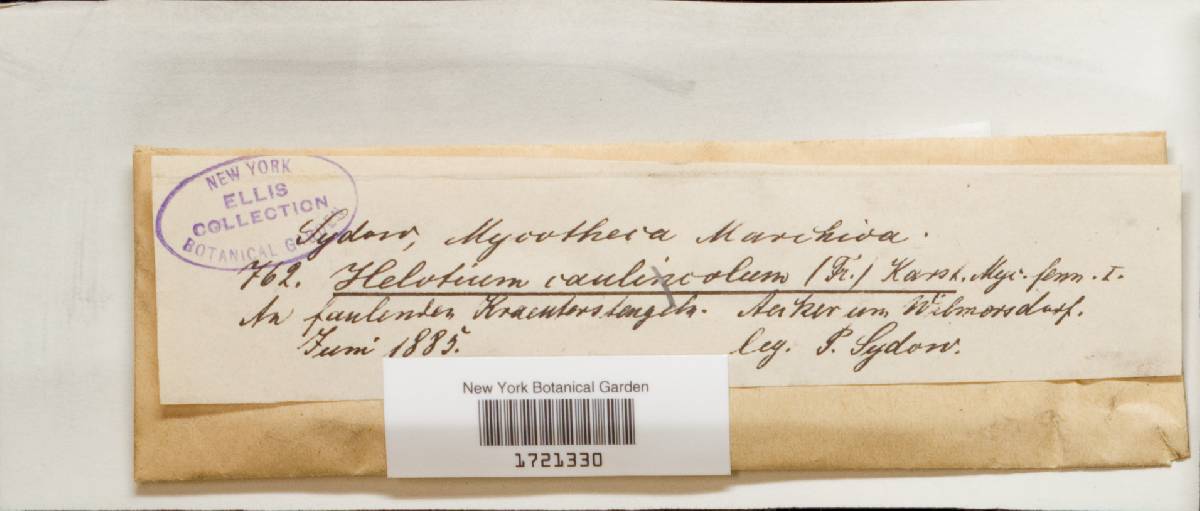 NEW YORK
ELLIS
COLLECTION
BOTANICAL GARDEN
Sydow, Mycotheca Marchica.
762. Helotium caulincolum (Fr.) Karst. Myc. fenn. I.
An faulenden Kraeuterstengeln. Aecker um Wilmersdorf.
Juni 1885. leg. P. Sydow.
New York Botanical Garden
1721330